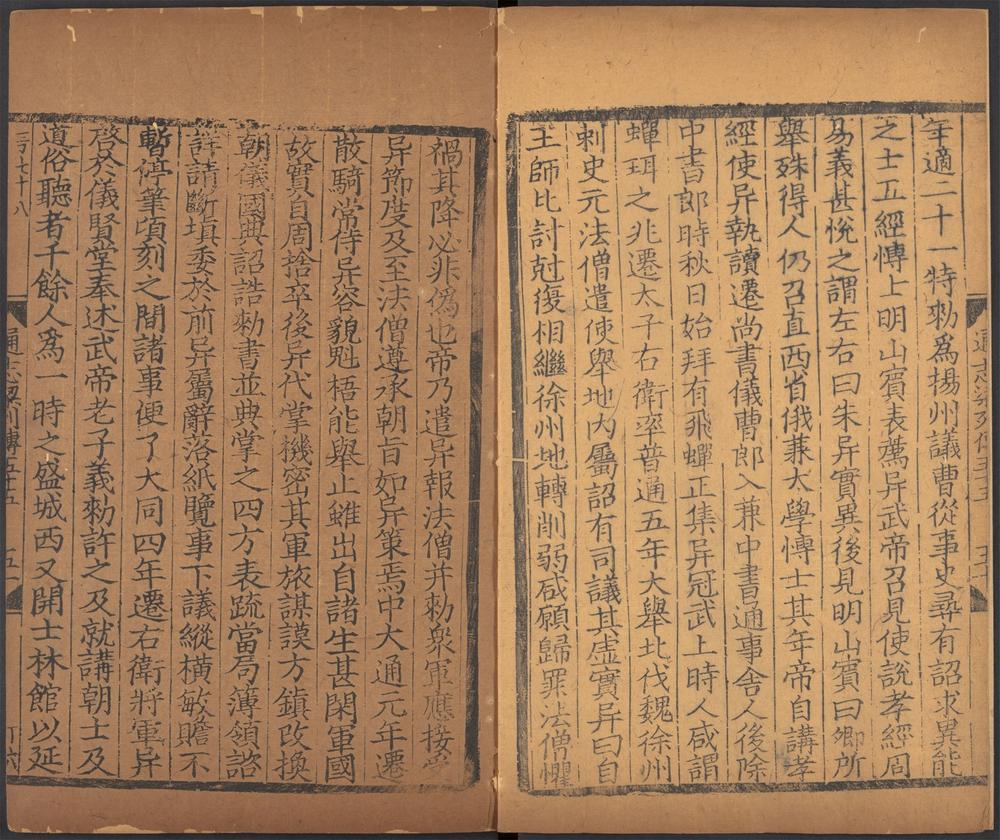 年適二十一特勑爲揚州議曹從事史尋有詔求異能
之士五經愽士明山賔表薦异武帝召見使說孝經周
易義甚悅之謂左右曰朱异實異後見明山賔曰卿所
舉殊得人仍召直西省俄兼太學愽士其年帝自講孝
經使异執讀遷尚書儀曹郎入兼中書通事舍人後除
中書郎時秋日始拜有飛蟬正集异冠武上時人咸謂
蟬珥之兆遷太子右衛率普通五年大舉北伐魏徐州
刺史元法僧遣使舉地内屬詔有司議其虛實异曰自
王師比討尅復相繼徐州地轉削弱咸願歸罪法僧懼
禍其降必非偽也帝乃遣异報法僧并勑衆軍應接受
异節度及至法僧遵承朝旨如异策焉中大通元年遷
散騎常侍异容貌魁梧能舉止雖出自諸生甚閑軍國
故實自周捨卒後异代掌機密其軍旅謀謨方鎮改換
朝儀國典詔誥勑書並典掌之四方表疏當局簿領諮
詳請斷塡委於前异屬辭落紙覽事下議縱橫敏贍不
暫停筆頃刻之間諸事便了大同四年遷右衛將軍异
啓於儀賢堂奉述武帝老子義勑許之及就講朝士及
道俗聽者千餘人爲一時之盛城西又開士林館以延
三百七十八
通志列傳五十五
五